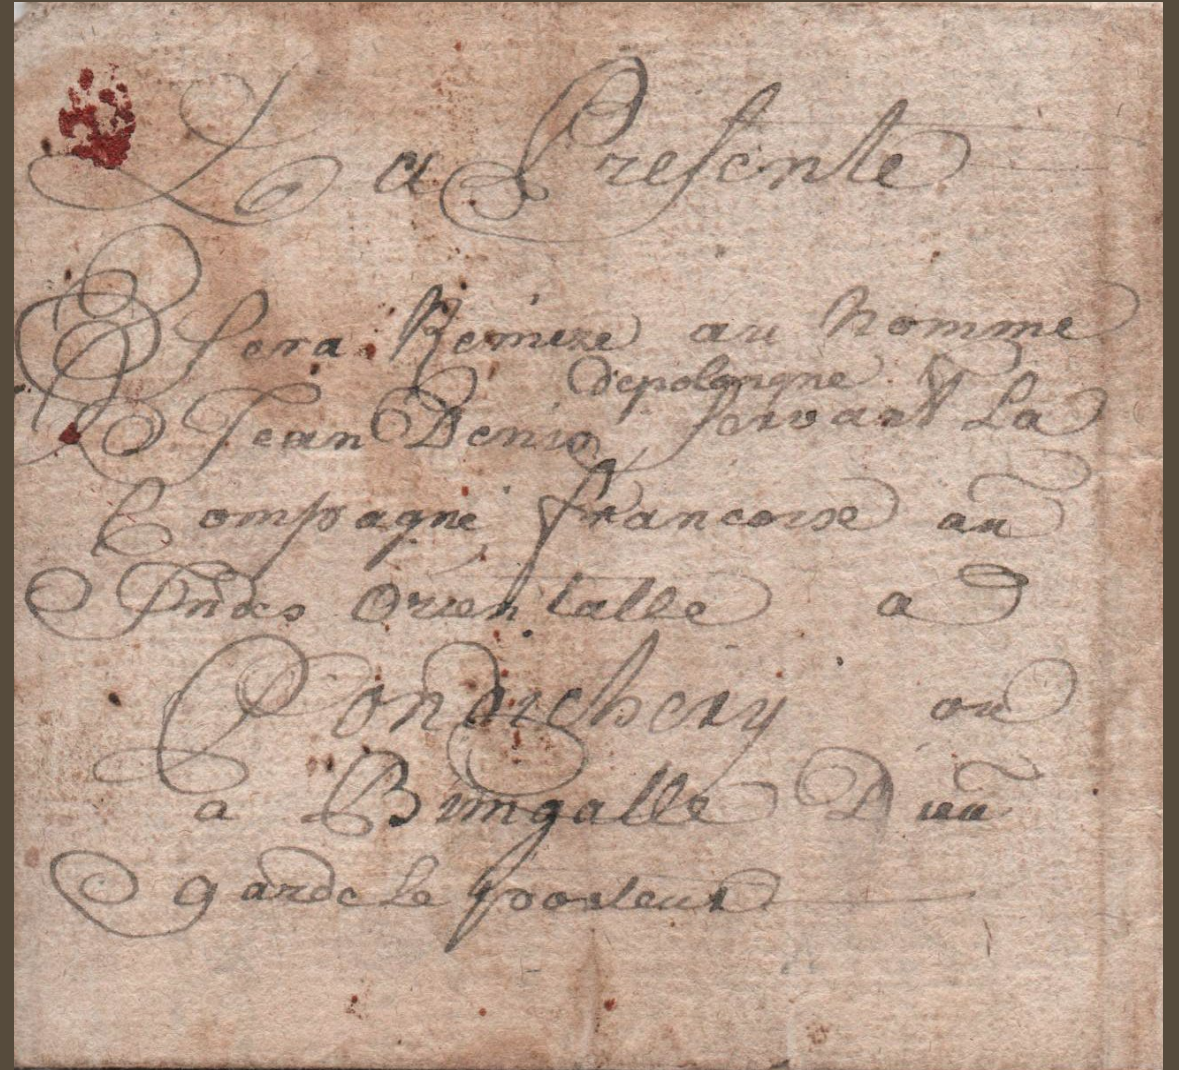 La Presente
Sera Remize au Nomme
depolongne
Jean Denis servant La
Compagne francoise au
Indes Orientalle a
Pondichery ou
a Bimgalle Dieu
garde Le porteur